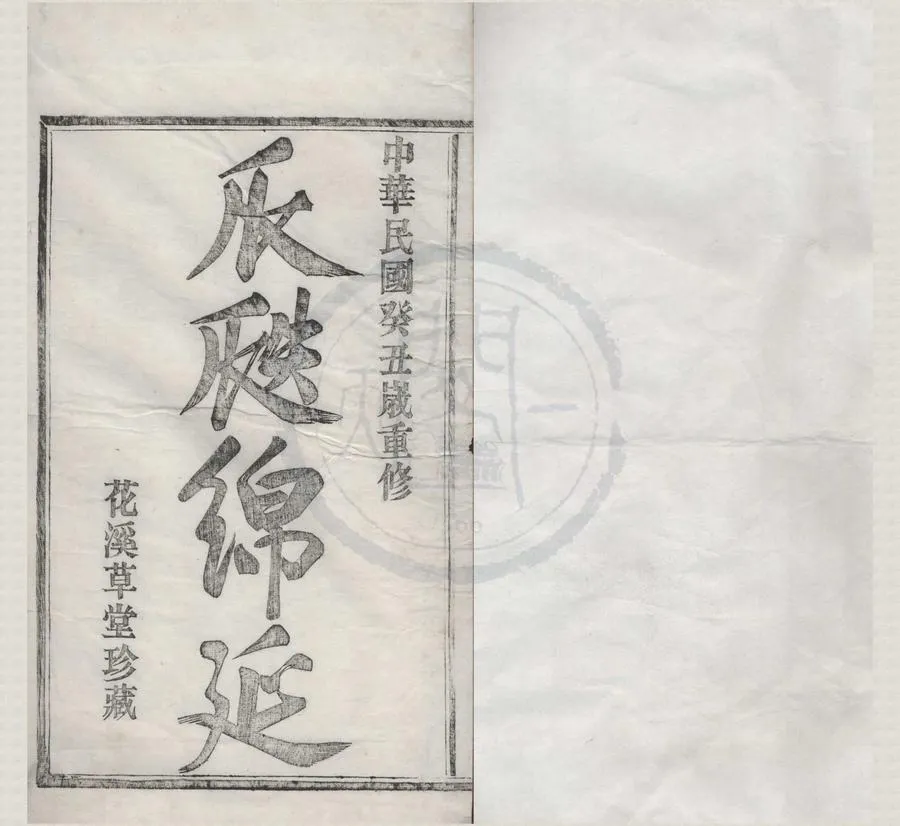 中華民國癸丑歲重修
瓜瓞綿延
花溪草堂珍藏